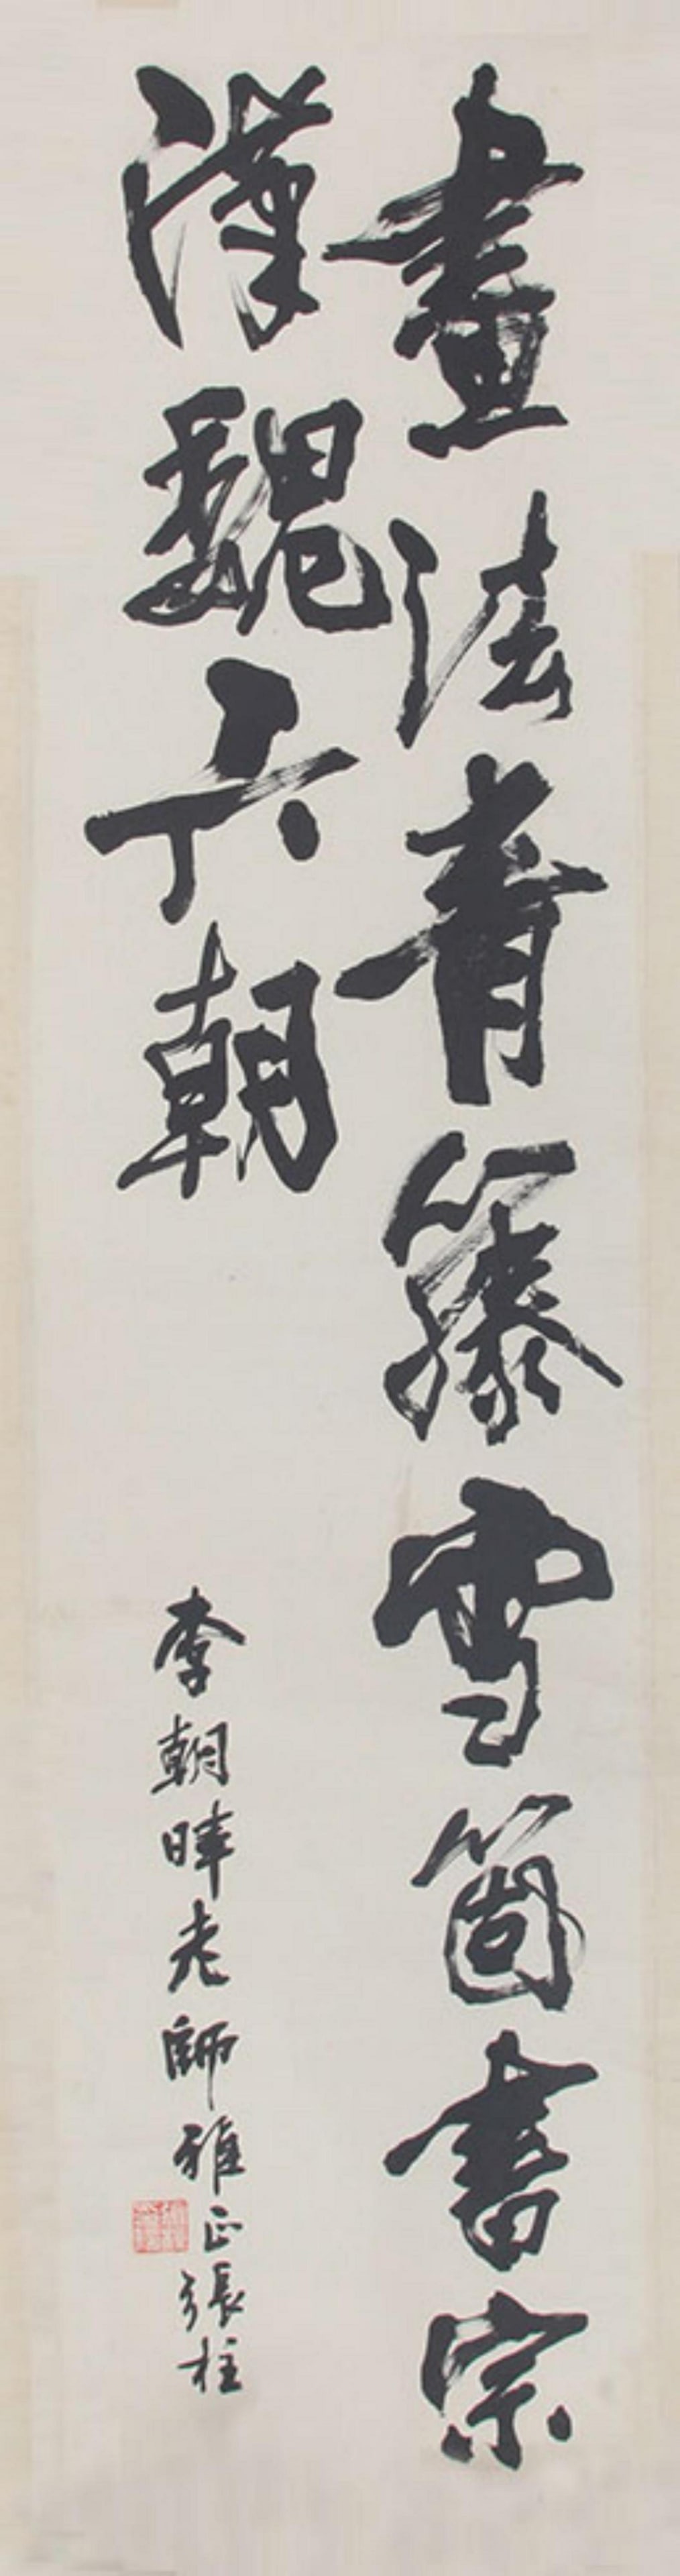 畫法青籐雪箇書宗
漢魏六朝
李朝暉老師雅正張柱